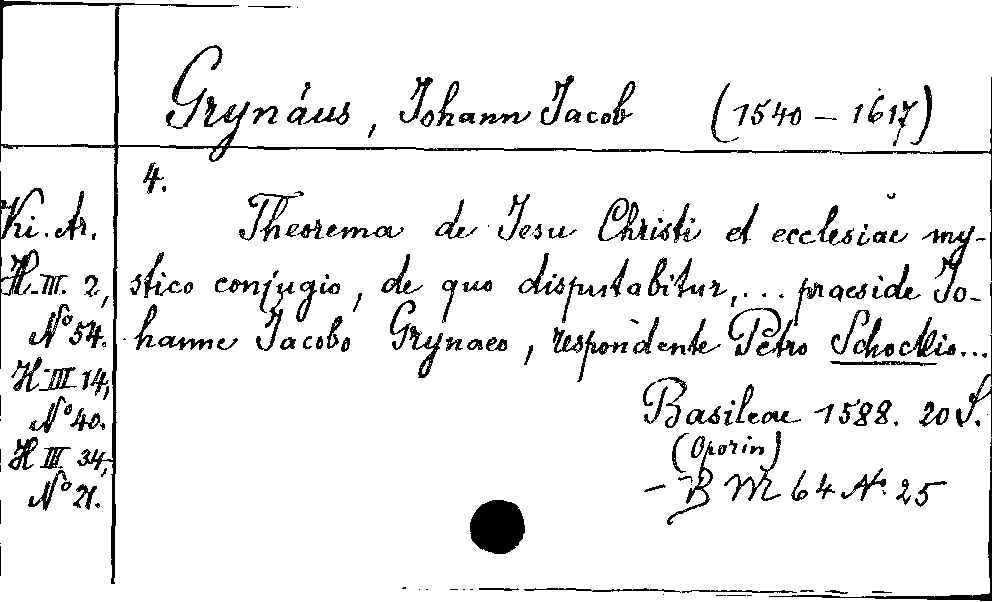 Grynäus, Johann Jacob (1540 – 1617)
4.
Ki. Ar.
H. III. 2,
No 54.
H III 14,
No 40.
H III 34,
No 21.
Theorema de Jesu Christi et ecclesiae my-
stico conjugio, de quo disputabitur, ... praeside Jo-
hanne Jacobo Grynaeo, respondente Petro Schockio...
Basileae 1588. 20 S.
(Oporin)
– B M 64 No. 25